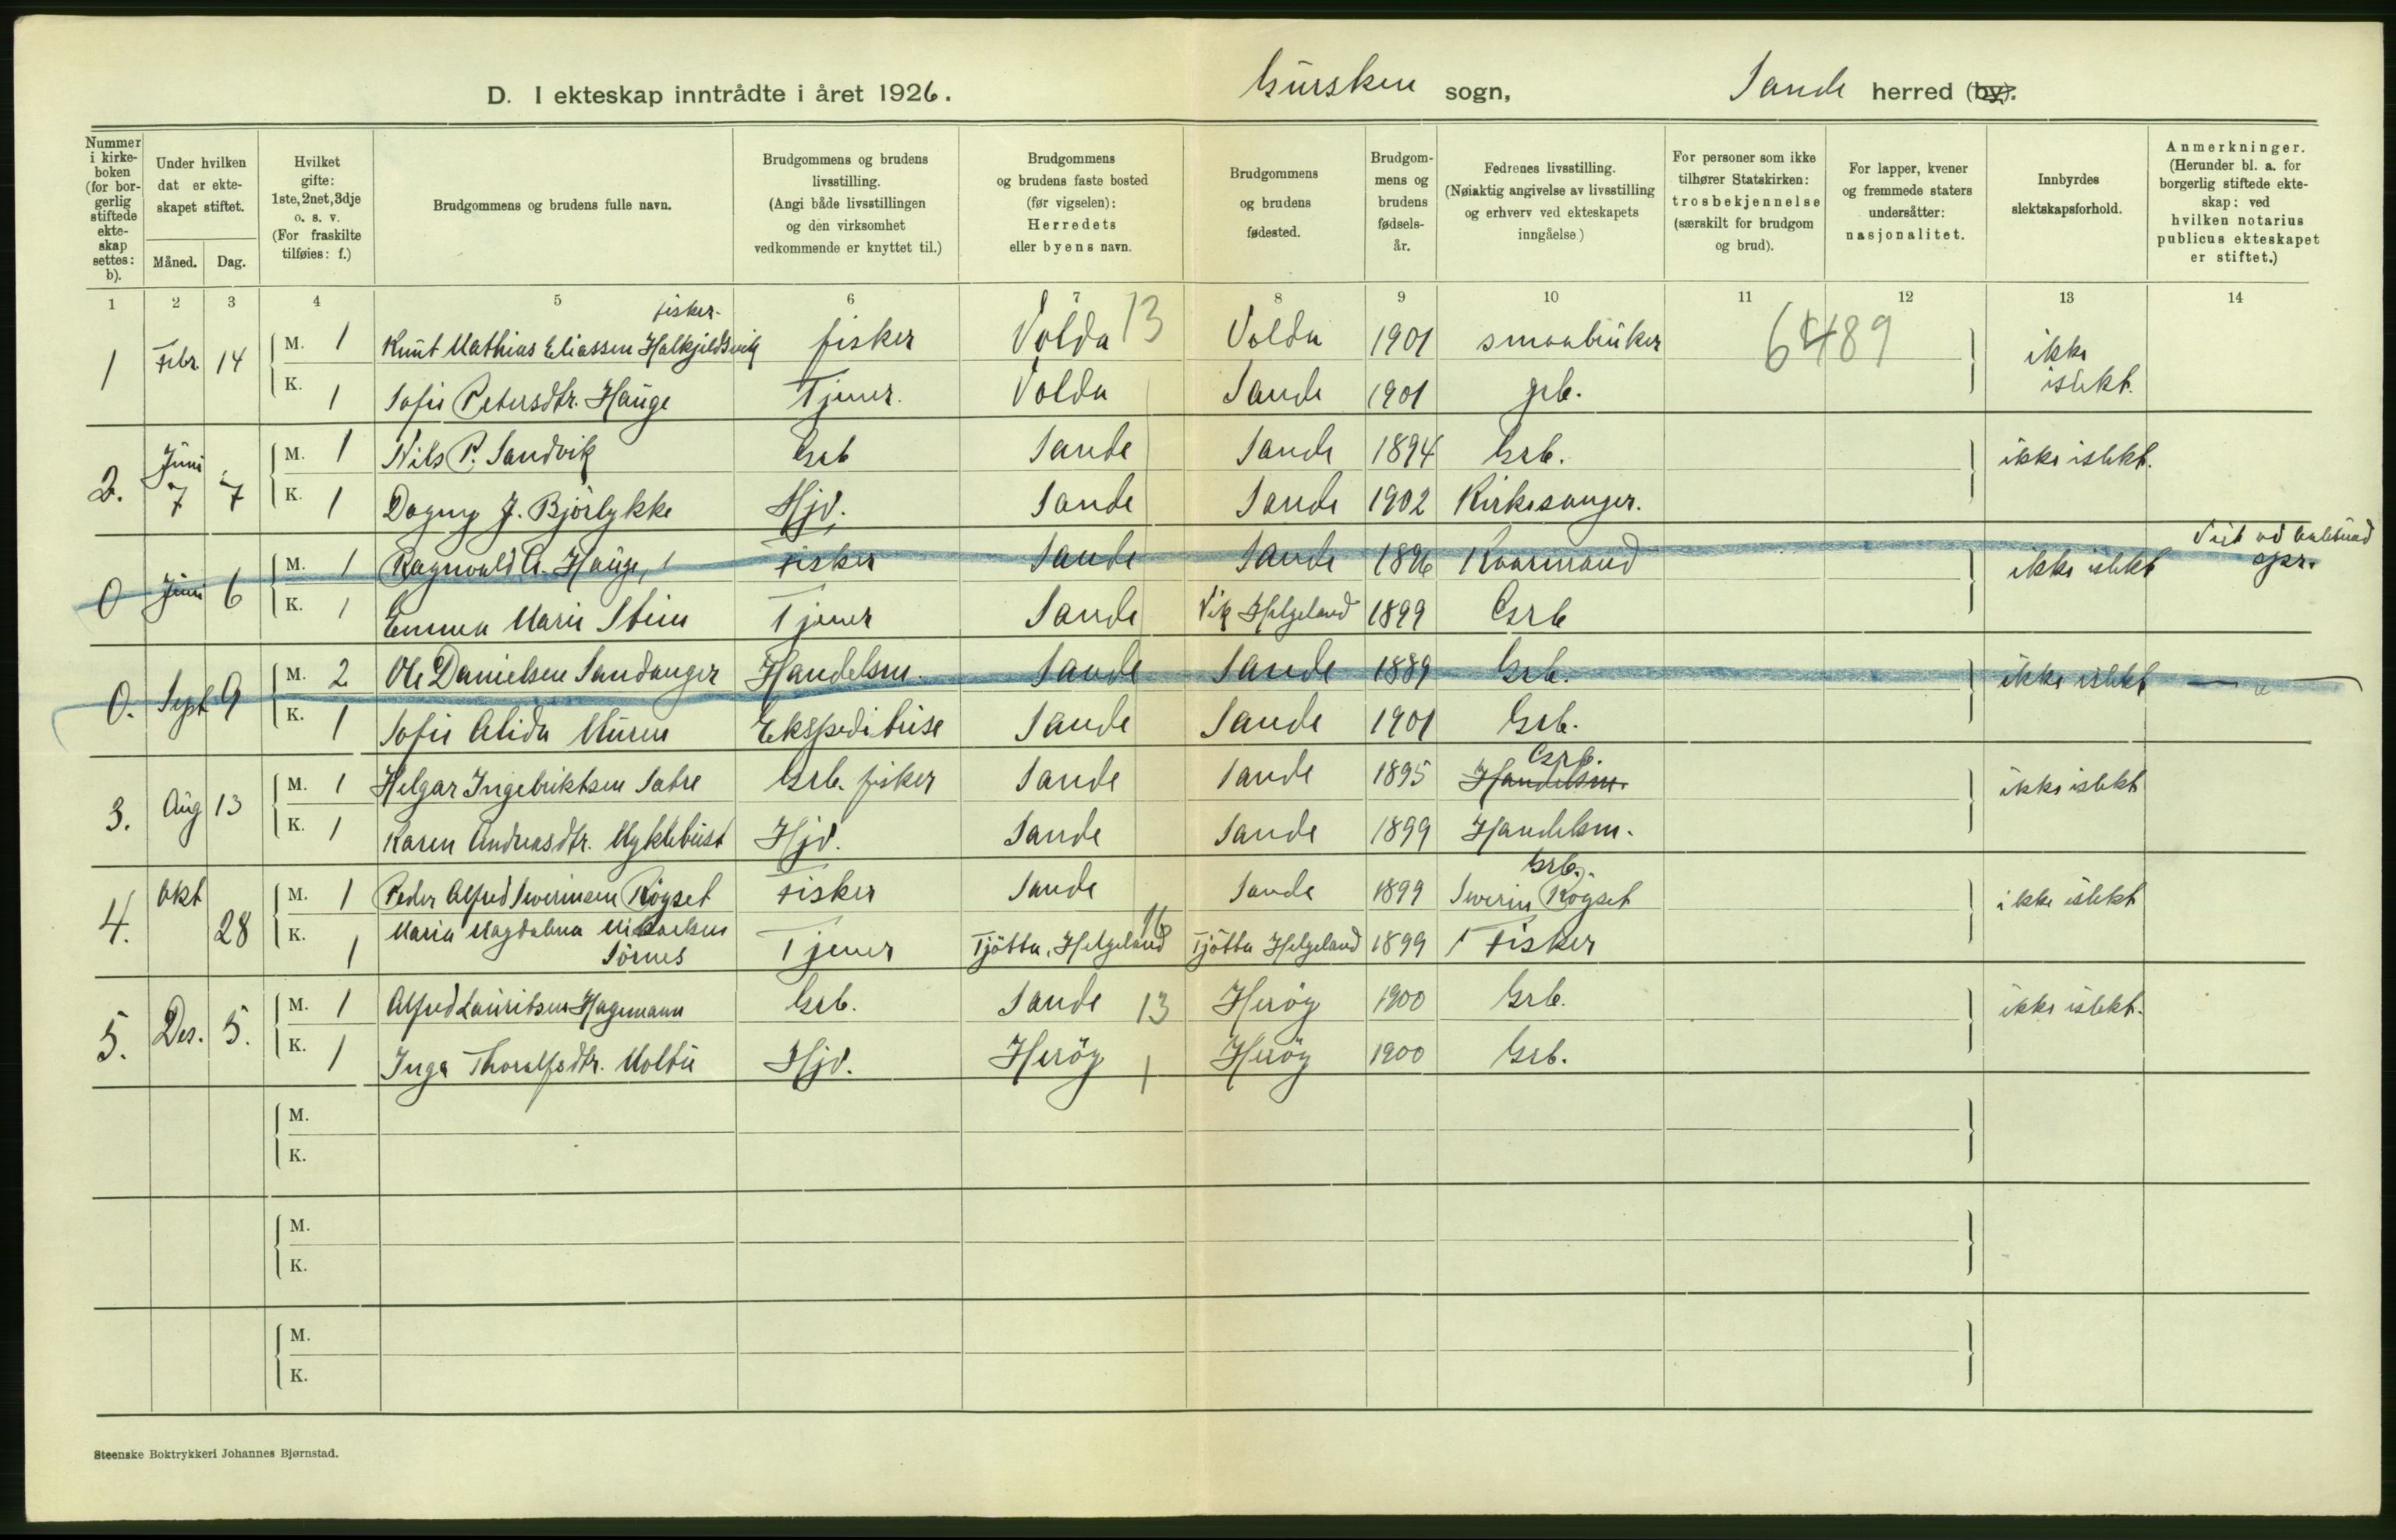 D. I ekteskap inntrådte i året 1926. Gursken sogn, Sande herred (by).
Nummer i kirkeboken (for borgerlig stiftede ekteskap settes: b).
Under hvilken dat er ekteskapet stiftet.
Måned. Dag.
Hvilket gifte: 1ste, 2net, 3dje o. s. v. (For fraskilte tilføies: f.)
Brudgommens og brudens fulle navn.
Brudgommens og brudens livsstilling. (Angi både livsstillingen og den virksomhet vedkommende er knyttet til.)
Brudgommens og brudens faste bosted (før vigselen): Herredets eller byens navn.
Brudgommens og brudens fødested.
Brudgommens og brudens fødselsår.
Fedrenes livsstilling. (Nøiaktig angivelse av livsstilling og erhverv ved ekteskapets inngåelse.)
For personer som ikke tilhører Statskirken: trosbekjennelse (særskilt for brudgom og brud).
For lapper, kvener og fremmede staters undersåtter: nasjonalitet.
Innbyrdes slektskapsforhold.
Anmerkninger. (Herunder bl. a. for borgerlig stiftede ekteskap: ved hvilken notarius publicus ekteskapet er stiftet.)
1 2 3 4 5 6 7 8 9 10 11 12 13 14
fisker-
1 Febr. 14 M. 1 Knut Mathias Eliassen Halkjeldsvik fisker Volda 13 Volda 1901 smaabruker 6489 ikke islekt.
K. 1 Sofie Petersdtr. Hauge Tjener. Volda Sande 1901 grb.
2. Juni 7 7 M. 1 Nils P. Sandvik Grb Sande Sande 1894 Grb. ikke islekt.
K. 1 Dagny J. Bjørlykke Hjv. Sande Sande 1902 Kirkesanger.
0 Juni 6 M. 1 Ragnvald A. Hauge, Fisker Sande Sande 1896 Kaarmand ikke islekt Viet ved Aalesund spr.
K. 1 Emma Marie Stien Tjener Sande Vik Helgeland 1899 Grb
0. Sept 9 M. 2 Ole Danielsen Sandanger Handelsm. Sande Sande 1889 Grb. ikke islekt — " —
K. 1 Sofie Alida Muren Ekspeditrise Sande Sande 1901 Grb.
Grb.
3. Aug 13 M. 1 Helgar Ingebriktsen Sætre Grb. fisker Sande Sande 1895 Handelsm. ikke islekt
K. 1 Karen Andreasdtr. Myklebust Hjv. Sande Sande 1899 Handelsm.
Grb.
4. Okt 28 M. 1 Peder Alfred Severinsen Røyset Fisker Sande Sande 1899 Severin Røyset ikke islekt
K. 1 Maria Magdalena Mikaelsen Sørnes Tjener Tjøtta, Helgeland 16 Tjøtta Helgeland 1899 Fisker
5. Des. 5. M. 1 Alfred Lauritsen Hagemann Grb. Sande 13 Herøy 1900 Grb. ikke islekt.
K. 1 Inga Thoralfsdtr. Moltu Hjv. Herøy 1 Herøy 1900 Grb.
M.
K.
M.
K.
M.
K.
Steenske Boktrykkeri Johannes Bjørnstad.